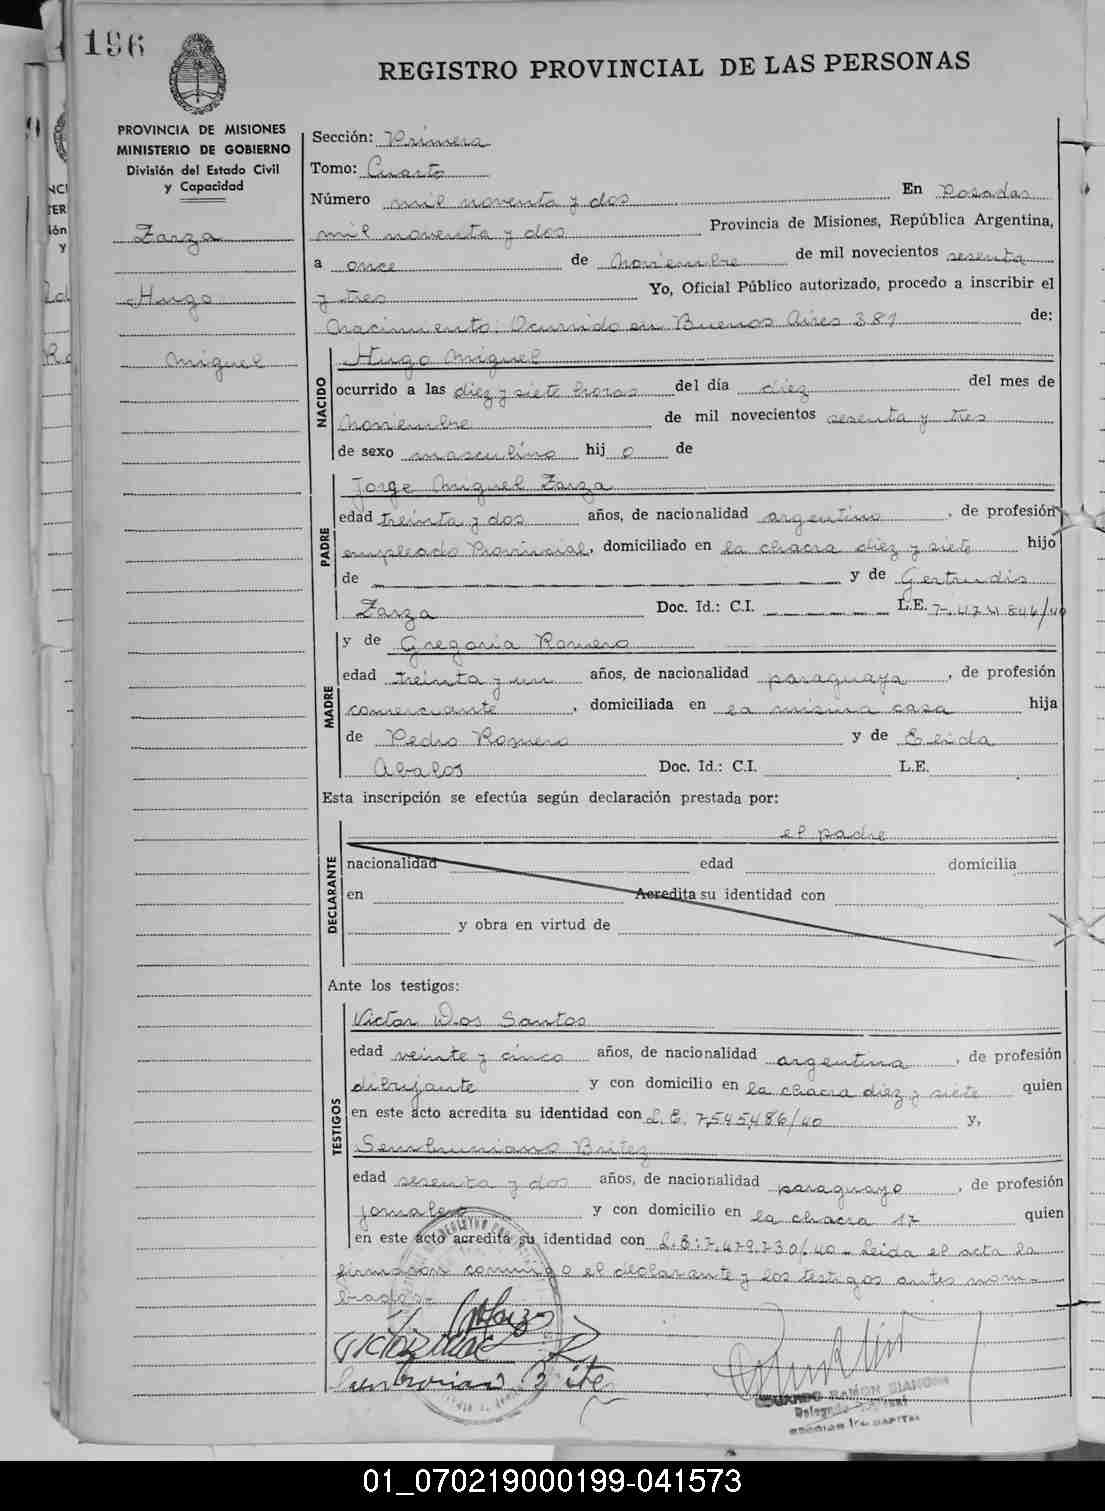 196
REGISTRO PROVINCIAL DE LAS PERSONAS
PROVINCIA DE MISIONES
MINISTERIO DE GOBIERNO
División del Estado Civil
y Capacidad
Zarza
Hugo
Miguel
Sección: Primera
Tomo: Cuarto
Número mil noventa y dos En Posadas
mil noventa y dos Provincia de Misiones, República Argentina,
a once de Noviembre de mil novecientos sesenta
y tres Yo, Oficial Público autorizado, procedo a inscribir el
Nacimiento: Ocurrido en Buenos Aires 381 de:
NACIDO
Hugo Miguel
ocurrido a las diez y siete horas del día diez del mes de
Noviembre de mil novecientos sesenta y tres
de sexo masculino hij o de
PADRE
Jorge Miguel Zarza
edad treinta y dos años, de nacionalidad argentino, de profesión
empleado Provincial, domiciliado en la chacra diez y siete hijo
de y de Gertrudis
Zarza Doc. Id.: C.I. L.E. 7.474.846/40
MADRE
y de Gregoria Romero
edad treinta y un años, de nacionalidad paraguaya, de profesión
comerciante, domiciliada en la misma casa hija
de Pedro Romero y de Elida
Abalos Doc. Id.: C.I. L.E.
Esta inscripción se efectúa según declaración prestada por:
DECLARANTE
el padre
nacionalidad edad domicilia
en Acredita su identidad con
y obra en virtud de
Ante los testigos:
TESTIGOS
Victor Dos Santos
edad veinte y cinco años, de nacionalidad argentina, de profesión
dibujante y con domicilio en la chacra diez y siete quien
en este acto acredita su identidad con L.E. 7,545,486/40 y,
Britez
edad sesenta y dos años, de nacionalidad paraguayo, de profesión
jornalero y con domicilio en la chacra 17 quien
en este acto acredita su identidad con L.E: 7.479.730/40 - Leida el acta la
firmaron conmigo el declarante y los testigos antes nom-
brados.-
EDUARDO RAMON
Delegado
SECCION 1ra. CAPITAL
01_070219000199-041573